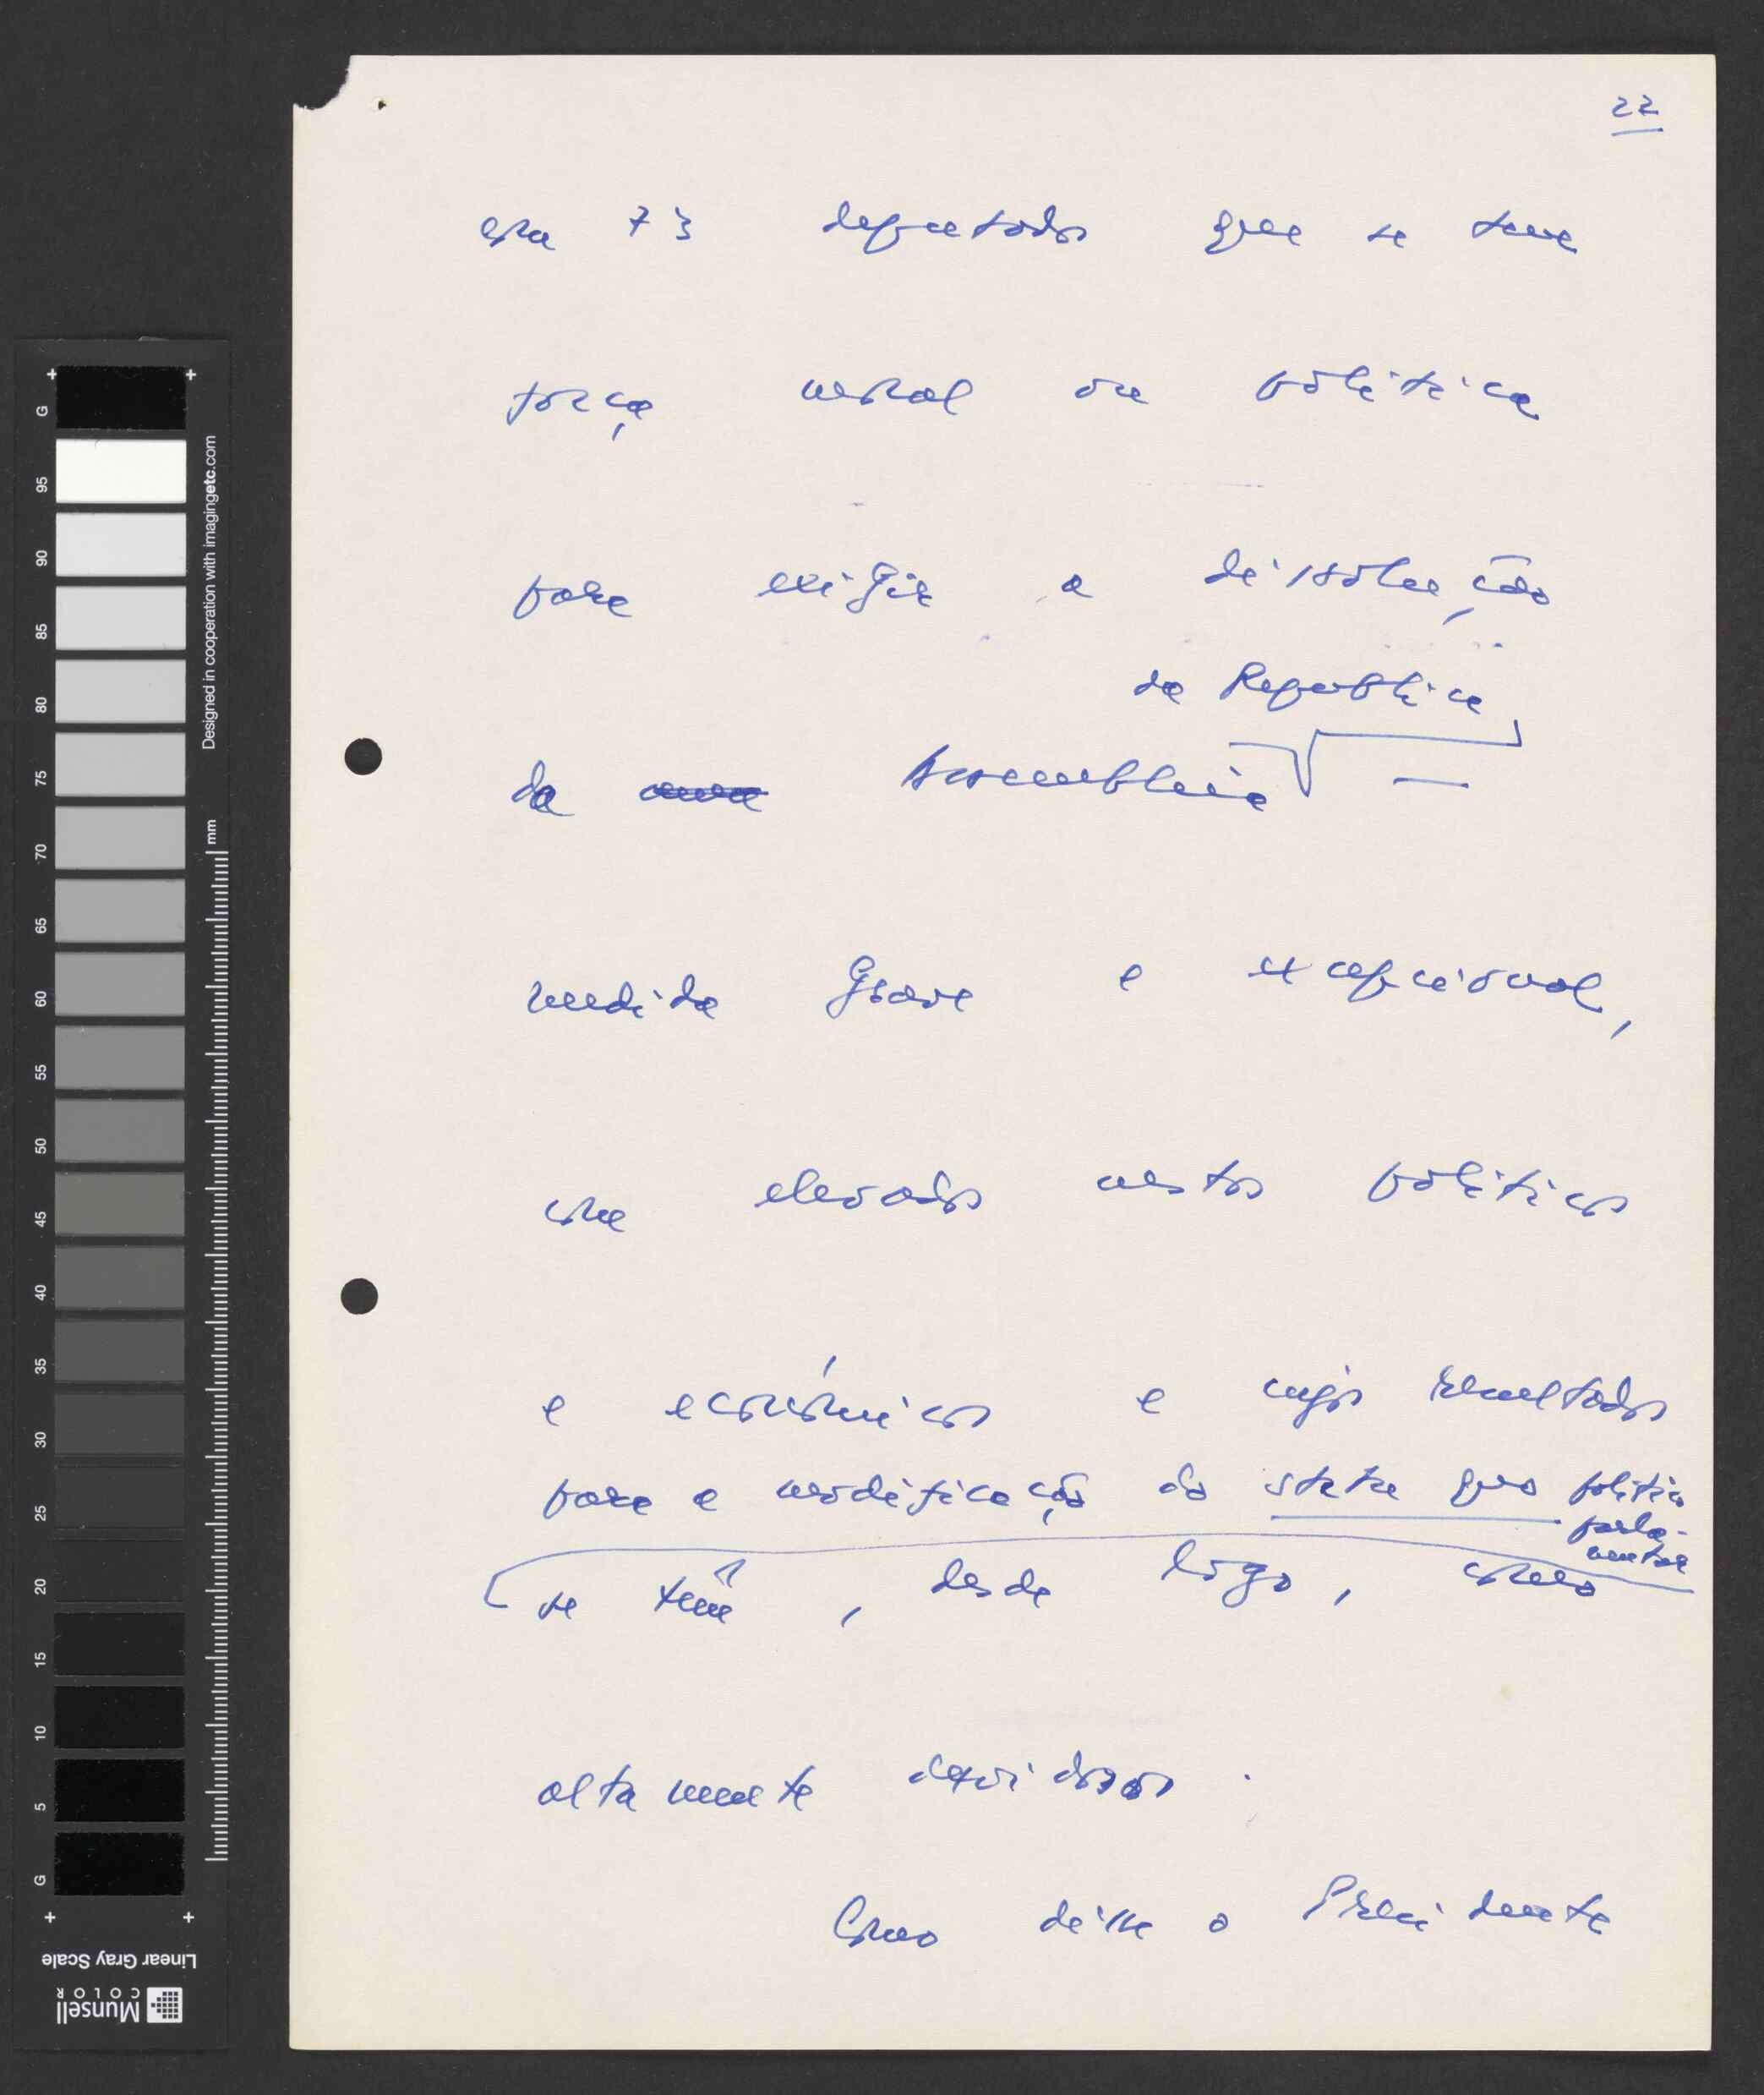 22
com 73 deputados que se tem
força moral ou política
para exigir a dissolução
da República
da uma Assembleia —
medida grave e excepcional,
com elevados custos políticos
e económicos e cujos resultados
para a modificação do statu quo político
parla-
mentar
se têm, desde logo, como
altamente duvidosos.
Como disse o Presidente
G 95 90 85 80 75 70 65 60 55 50 45 40 35 30 25 20 15 10 5 G
Designed in cooperation with imagingetc.com
mm
Linear Gray Scale
Munsell
COLOR